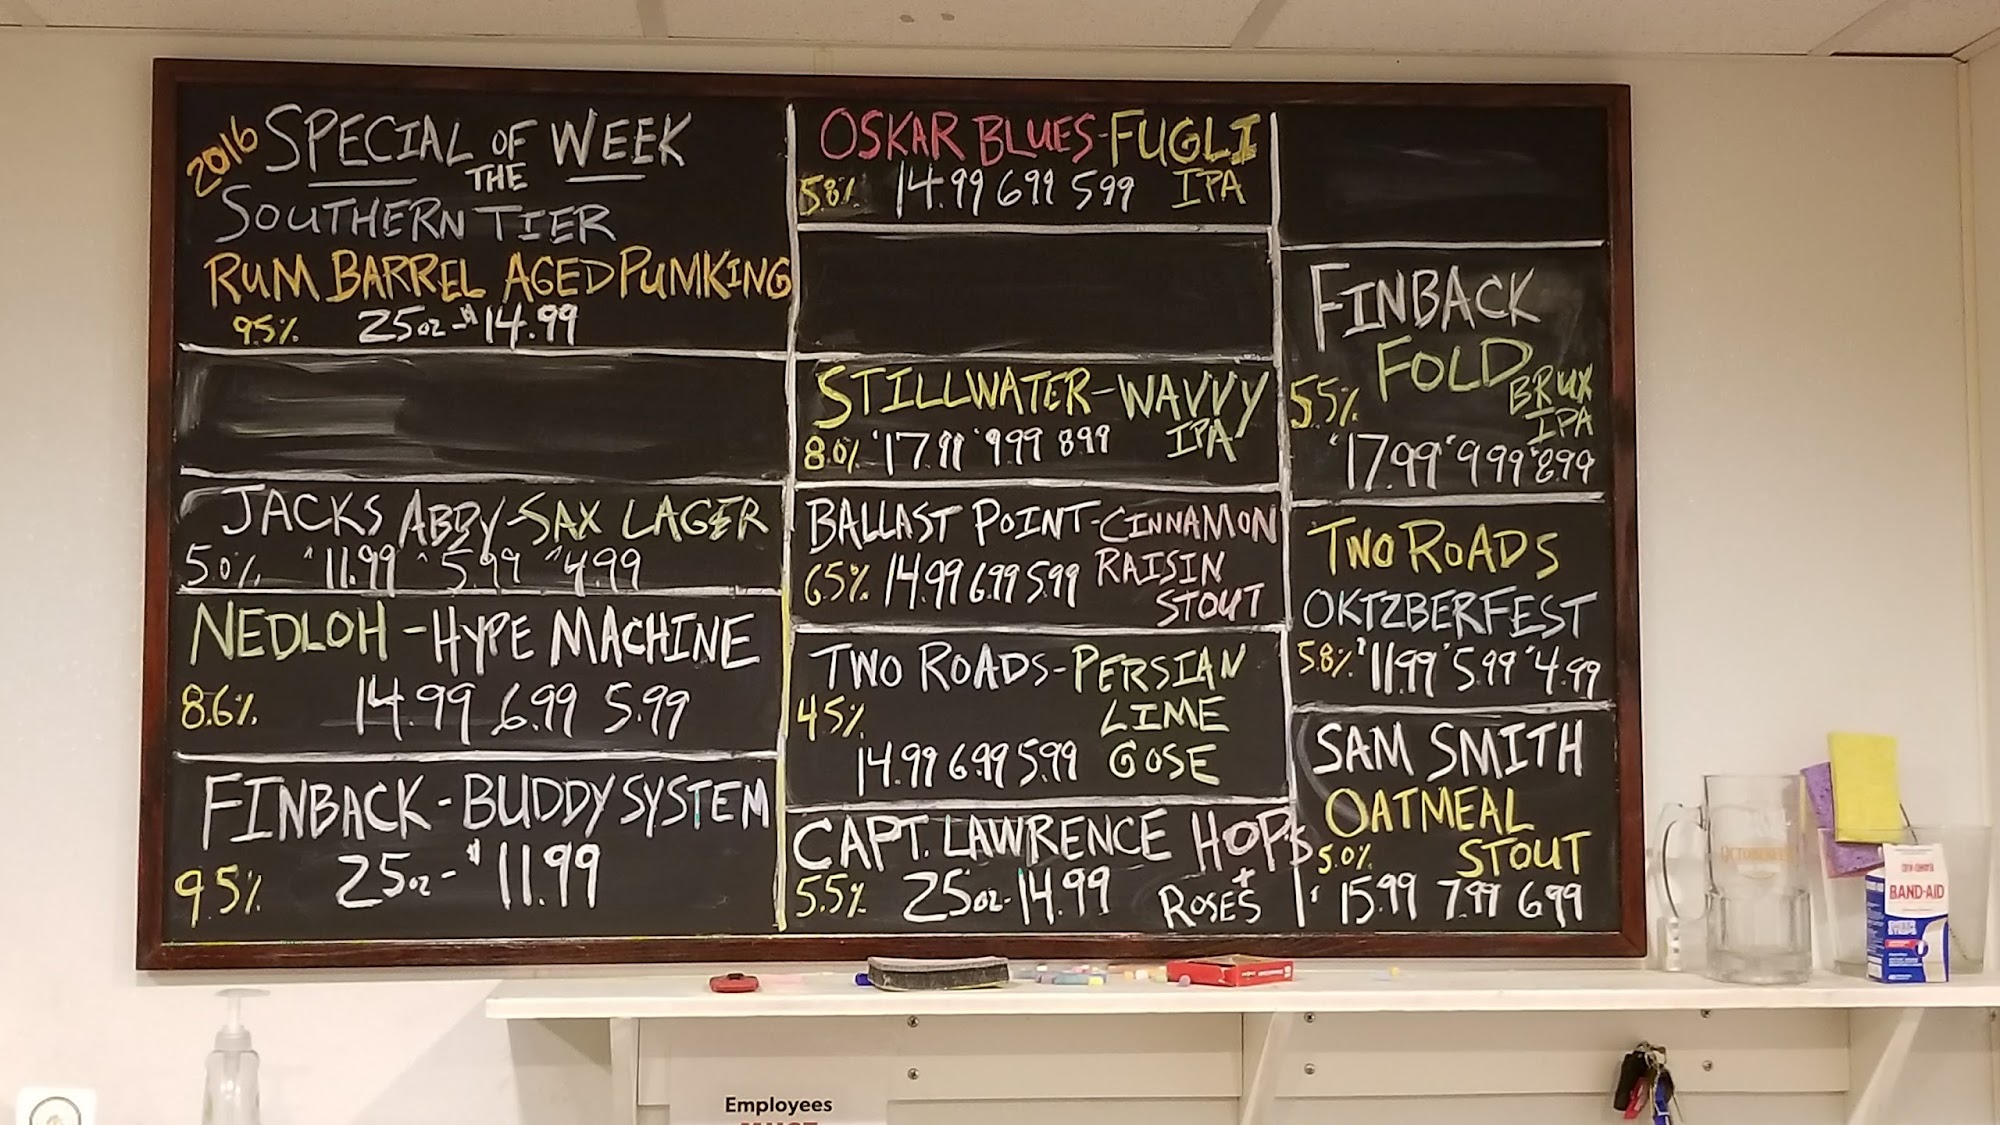 2016 SPECIAL OF THE WEEK
SOUTHERN TIER
RUM BARREL AGED PUMKING
9.5% 25oz - $14.99
JACKS ABBY - SAX LAGER
5.0% 11.99 5.99 4.99
NEDLOH - HYPE MACHINE
8.6% 14.99 6.99 5.99
FINBACK - BUDDY SYSTEM
9.5% 25oz - $11.99
OSKAR BLUES - FUGLI
5.8% 14.99 699 599 IPA
STILLWATER - WAVVY
8.0% 17.99 999 899 IPA
BALLAST POINT - CINNAMON
RAISIN
6.5% 14.99 6.99 5.99
STOUT
TWO ROADS - PERSIAN
4.5% LIME
14.99 6.99 5.99 GOSE
CAPT. LAWRENCE HOPS
+
5.5% 25oz - 14.99 ROSES
FINBACK
FOLD
5.5% BRUX
IPA
17.99 999 899
TWO ROADS
OKTZBERFEST
5.8% 11.99 5.99 4.99
SAM SMITH
OATMEAL
5.0% STOUT
15.99 7.99 6.99
BAND-AID
Employees
MUST